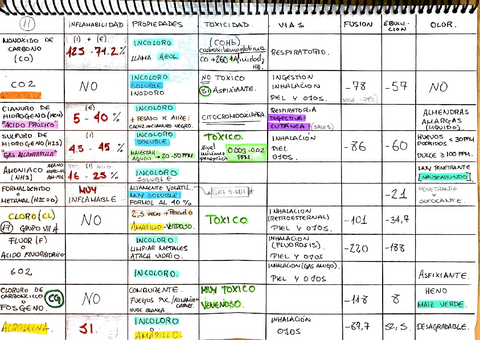 11 INFLAMABILIDAD PROPIEDADES TOXICIDAD VIAS FUSION EBULLI- CION OLOR.
MONOXIDO DE CARBONO (CO)
(I) + (E)
12.5 - 74.2 %
INCOLORO
LLAMA AZUL
(COHb)
RESPIRATORIO.
CO2
NO
INCOLORO
SOLUBLE
INODORO
NO TOXICO
INGESTION
INHALACION
PIEL Y OJOS.
-78
-57
NO
CIANURO DE HIDROGENO (HCN)
"ACIDO PRUSICO"
5 - 40 %
INCOLORO
+ PESADO K AIRE
CITOCROMOOXIDASA
RESPIRATORIA
DIGESTIVA
CUTANEA (SALES)
ALMENDRAS
AMARGAS
(LIQUIDO).
SULFURO DE HIDROGENO (H2S)
"GAS ALCANTARILLA"
(I)
4.5 - 45 %
INCOLORO
SOLUBLE
20-50 PPM
TOXICO.
0.003-0.02 PPM
INHALACION
PIEL
OJOS.
-86
-60
HUEVOS PODRIDOS < 30 PPM
DULCE ≥ 100 PPM.
AMONIACO (NH3)
16 - 25 %
INCOLORO
SOLUBLE
MUY PENETRANTE
(NAUSEABUNDO)
FORMALDEHIDO
METANAL (H2CO)
MUY
INFLAMABLE
ALTAMENTE VOLATIL.
MUY SOLUBLE
FORMOL AL 40 %
-21
PENETRANTE
Y
SOFOCANTE.
CLORO (CL)
GRUPO VII A
NO
2,5 VECES + PESADO
AMARILLO-VERDOSO.
TOXICO
INHALACION
(RETROESTERNAL)
PIEL Y OJOS
-101
-34,7
FLUOR (F)
ACIDO FLUORHIDRICO
INCOLORO.
LIMPIAR METALES
ATACA VIDRIO.
INHALACION
(FLUOROSIS).
PIEL Y OJOS
-220
-188
SO2
INCOLORO.
INHALACION
ASFIXIANTE.
CLORURO DE CARBONILO
O
FOSGENO.
CG
NO
COMBURENTE.
NUBE BLANCA
MUY TOXICO
VENENOSO.
INHALACION
PIEL Y OJOS.
-118
8
HENO
MAIZ VERDE.
ACROLEINA.
SI.
INCOLORO
O
AMARILLO.
INHALACION
OJOS
-87,7
52,5.
DESAGRADABLE.